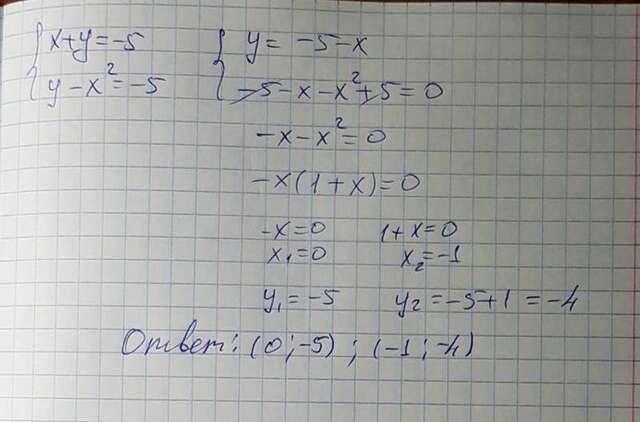 { x+y=-5 { y= -5-x
{ y-x²=-5 { -5-x-x²+5=0
-x-x²=0
-x(1+x)=0
-x=0 1+x=0
x₁=0 x₂=-1
y₁=-5 y₂=-5+1=-4
Ответ: (0;-5); (-1;-4)